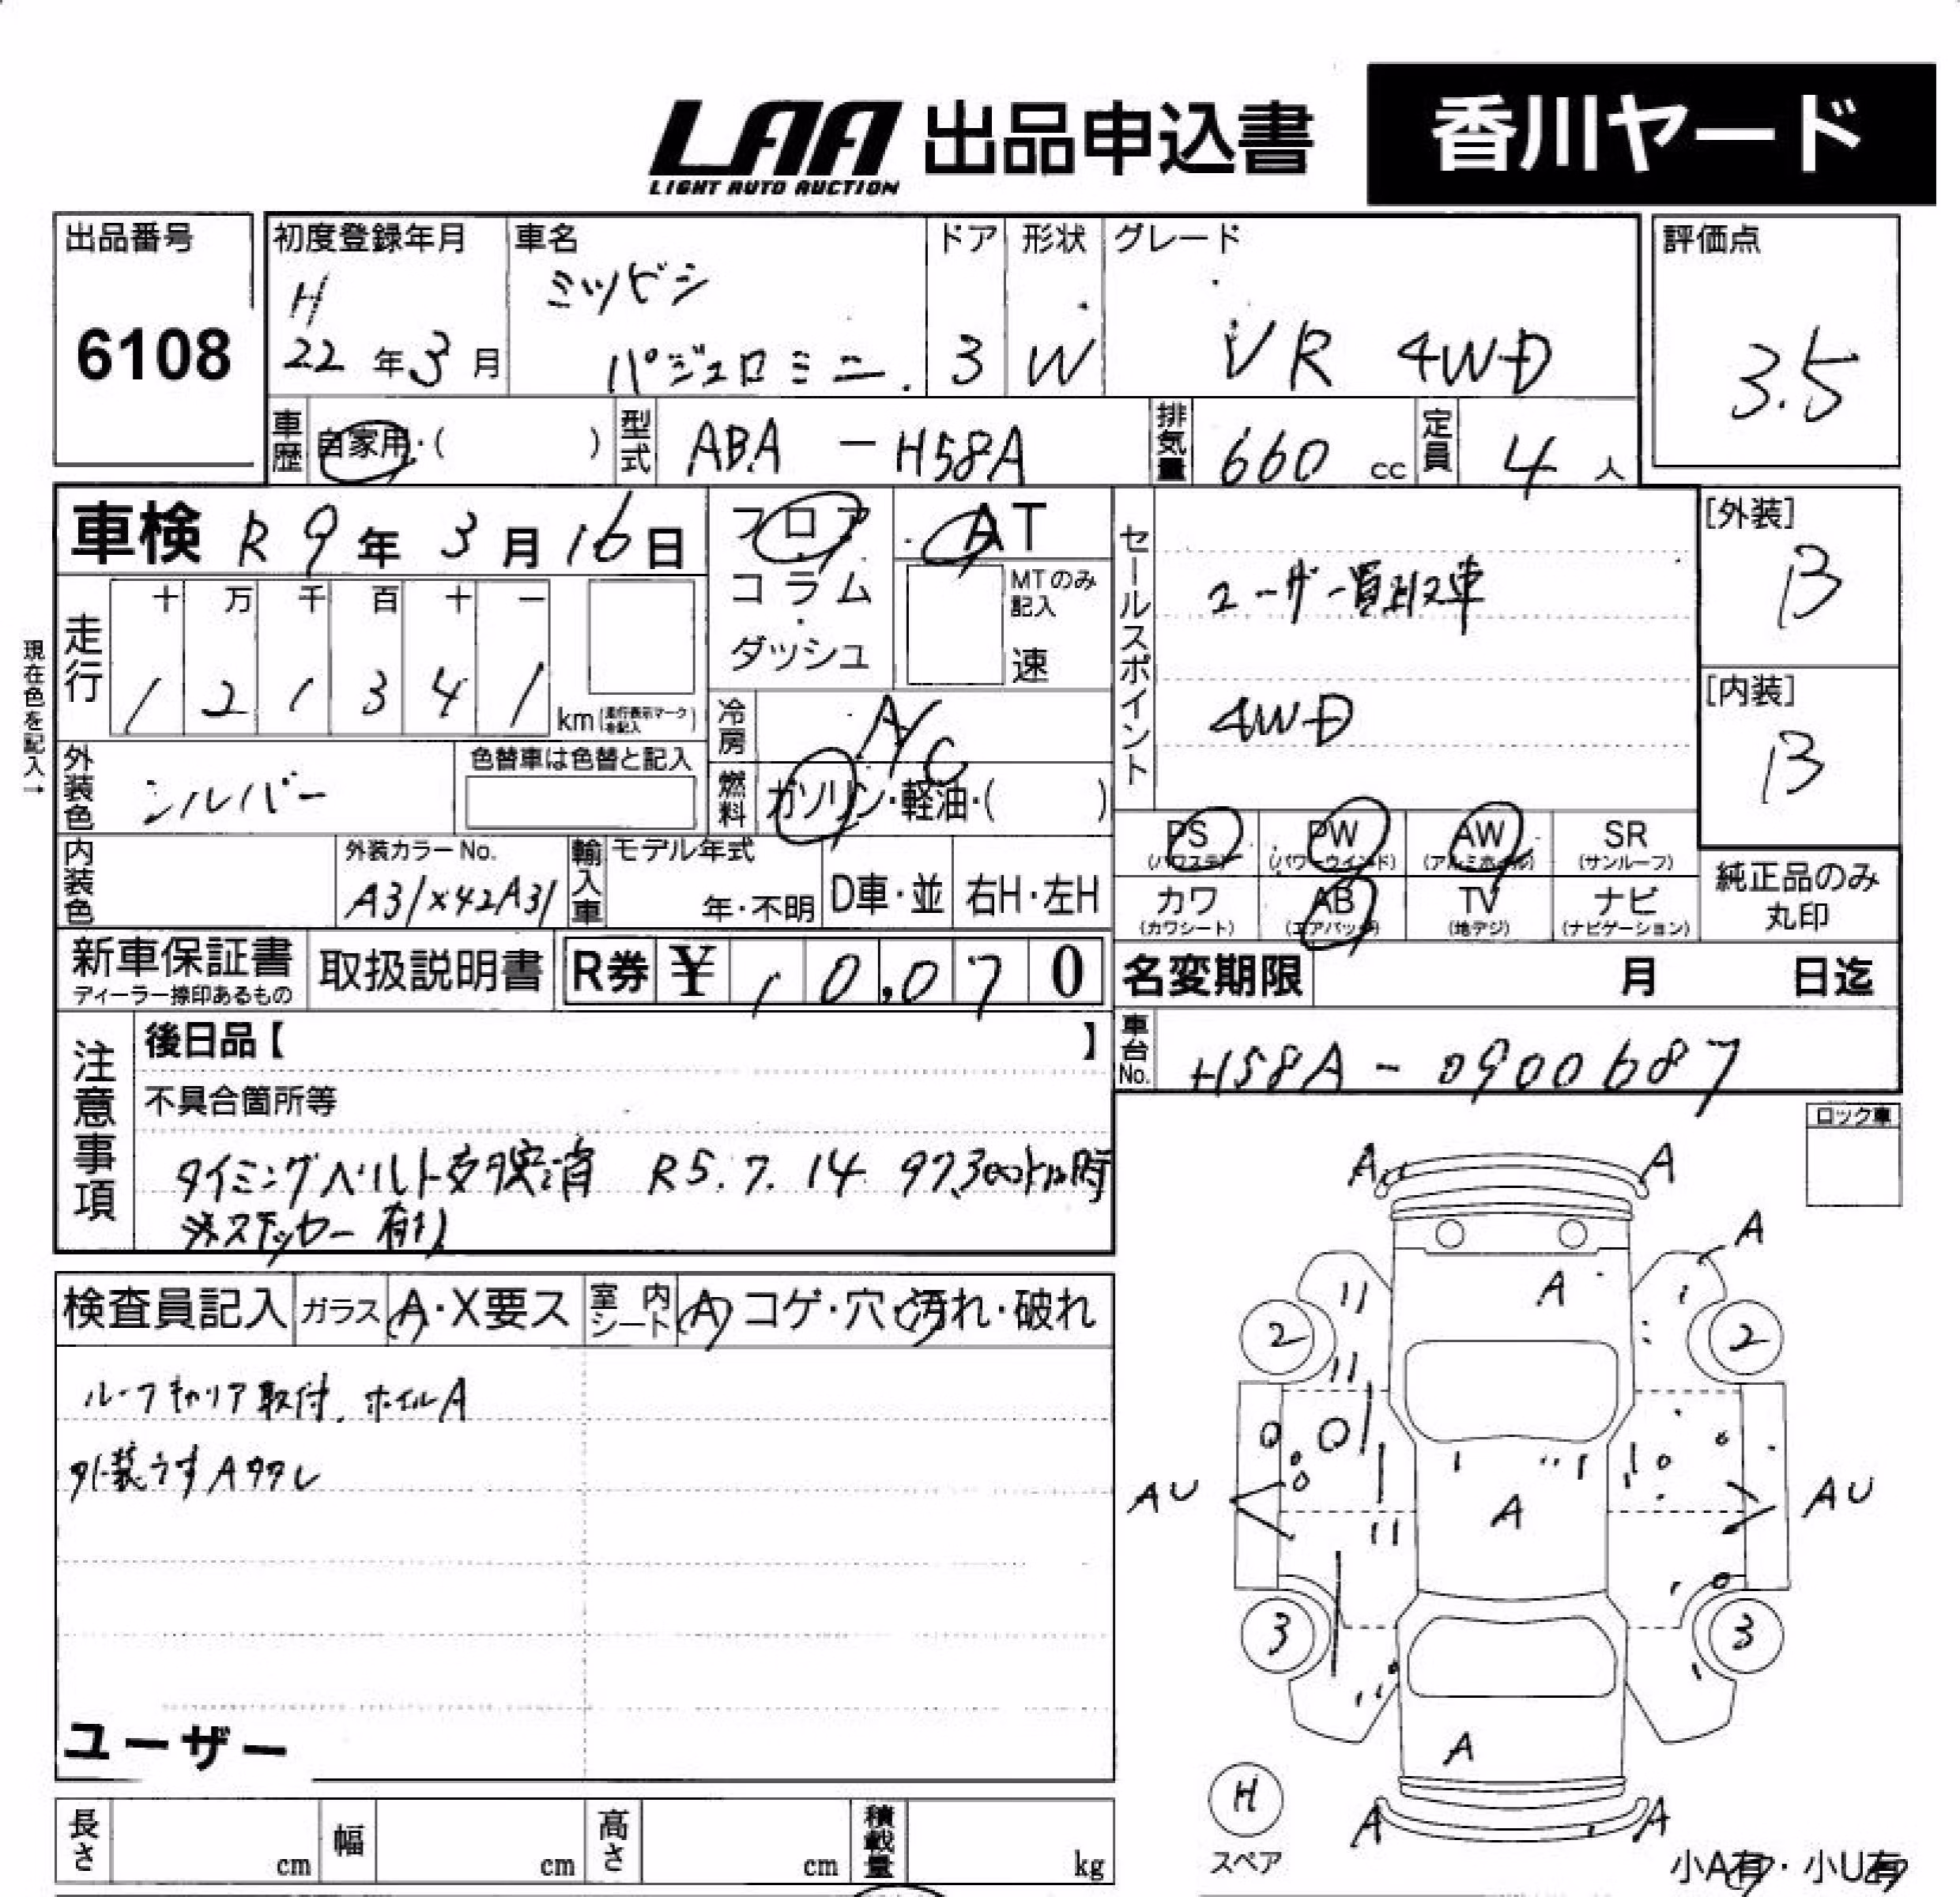 LAA 出品申込書 香川ヤード
LIGHT AUTO AUCTION
出品番号 初度登録年月 車名 ドア 形状 グレード 評価点
6108 H 22年3月 ミツビシ パジェロミニ 3 W VR 4WD 3.5
車歴 自家用・( ) 型式 ABA-H58A 排気量 660 cc 定員 4 人
車検 R9年3月16日
フロア・コラム・ダッシュ
AT
MTのみ記入
速
セールスポイント
ユーザー買取車
4WD
[外装] B
[内装] B
現在色を記入→
走行 十 万 千 百 十 一
1 2 1 3 4 1 km (走行表示マークを記入)
冷房 A/C
外装色 シルバー 色替車は色替と記入
燃料 ガソリン・軽油・( )
PS (パワステ) PW (パワーウインド) AW (アルミホイル) SR (サンルーフ)
カワ (カワシート) AB (エアバック) TV (地デジ) ナビ (ナビゲーション)
純正品のみ丸印
内装色 外装カラーNo. A31X42A31 輸入車 モデル年式 年・不明 D車・並 右H・左H
新車保証書 ディーラー捺印あるもの 取扱説明書 R券 ¥ 10,070
名変期限 月 日迄
車台No. H58A-0900687
注意事項
後日品【 】
不具合箇所等
タイミングベルト交換済 R5.7.14 97,300km時
※ステッカー有り
ロック車
検査員記入 ガラス A・X要ス 室内シート A コゲ・穴・汚れ・破れ
ルーフキャリア取付、ホイルA
外装うすAヤケレ
ユーザー
A A
A
A
2 2
AU A AU
3 3
A
H
スペア
A A
小A有・小U有
長さ cm 幅 cm 高さ cm 積載量 kg